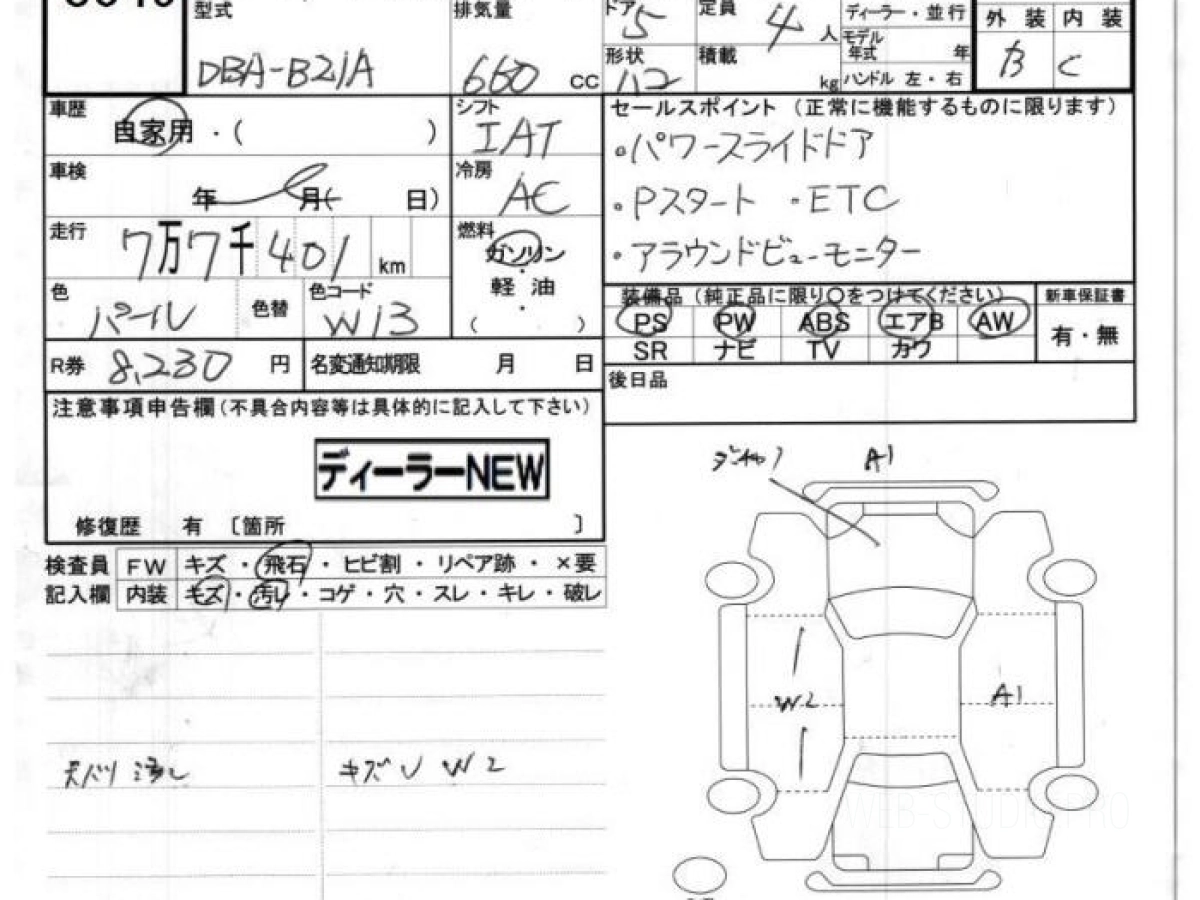 型式 排気量 ドア 5 定員 4 人 ディーラー・並行 外装 内装
DBA-B21A 660 cc 形状 積載 kg モデル年式 年 B C
ハンドル 左・右
車歴 自家用・( ) シフト IAT セールスポイント (正常に機能するものに限ります)
・パワースライドドア
車検 年 月( 日) 冷房 AC ・Pスタート ・ETC
走行 7万7千401 km 燃料 ガソリン ・アラウンドビューモニター
・
軽油
・
( )
色 パール 色替 色コード W13 装備品 (純正品に限り○をつけてください) 新車保証書
PS PW ABS エアB AW 有・無
SR ナビ TV カワ
R券 8,230 円 名変通知期限 月 日
後日品
注意事項申告欄(不具合内容等は具体的に記入して下さい)
ディーラーNEW
修復歴 有 〔箇所 〕
検査員 FW キズ・飛石・ヒビ割・リペア跡・×要
記入欄 内装 キズ・汚レ・コゲ・穴・スレ・キレ・破レ
A1
W2 A1
キズ W2
WEB-STUDIO.PRO